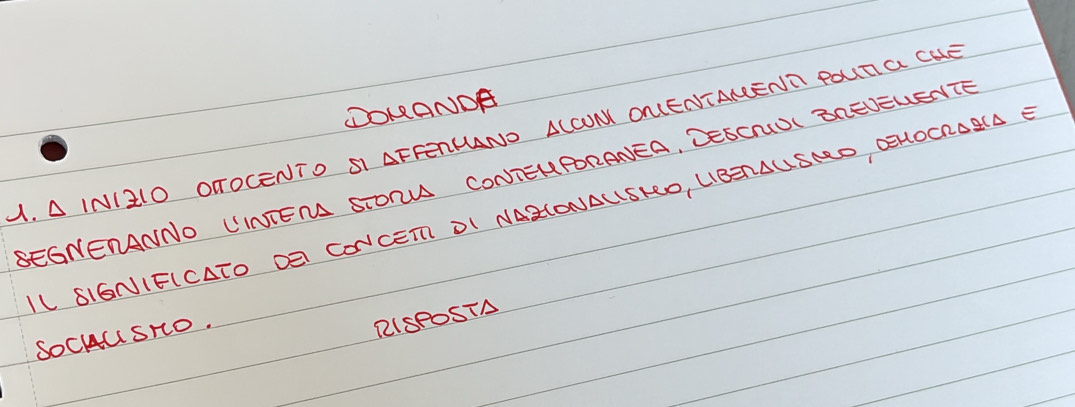 DOMANDA
1. A INIZIO OTTOCENTO SI AFFERMANO ALCUNI ORIENTAMENTI POLITICI CHE
SEGNERANNO L'INTERA STORIA CONTEMPORANEA. DESCRIVI BREVEMENTE
IL SIGNIFICATO DEI CONCETTI DI NAZIONALISMO, LIBERALISMO, DEMOCRAZIA E
SOCIALISMO.
RISPOSTA